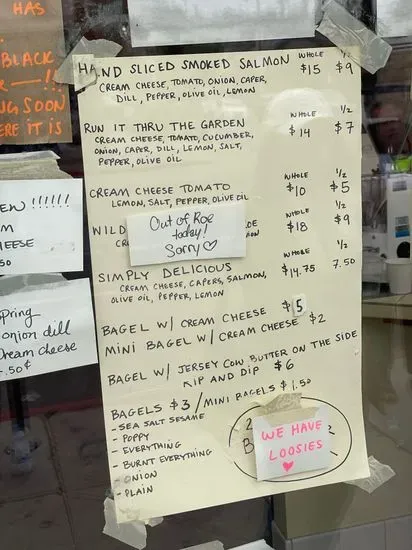 HAS
BLACK
R —!!
NG SOON
ERE IT IS
EW !!!!!!
M
HEESE
50
pring
onion dill
cream cheese
.50¢
HAND SLICED SMOKED SALMON WHOLE $15 1/2 $9
CREAM CHEESE, TOMATO, ONION, CAPER,
DILL, PEPPER, OLIVE OIL, LEMON
RUN IT THRU THE GARDEN WHOLE $14 1/2 $7
CREAM CHEESE, TOMATO, CUCUMBER,
ONION, CAPER, DILL, LEMON, SALT,
PEPPER, OLIVE OIL
CREAM CHEESE TOMATO WHOLE $10 1/2 $5
LEMON, SALT, PEPPER, OLIVE OIL
WILD OE WHOLE $18 1/2 $9
CR MON
Out of Roe
today!
Sorry ♡
SIMPLY DELICIOUS WHOLE $14.75 1/2 7.50
CREAM CHEESE, CAPERS, SALMON,
OLIVE OIL, PEPPER, LEMON
BAGEL W/ CREAM CHEESE $5
MINI BAGEL W/ CREAM CHEESE $2
BAGEL W/ JERSEY COW BUTTER ON THE SIDE
RIP AND DIP $6
BAGELS $3 / MINI BAGELS $1.50
- SEA SALT SESAME
- POPPY
- EVERYTHING
- BURNT EVERYTHING
- ONION
- PLAIN
2
B R
WE HAVE
LOOSIES
♥